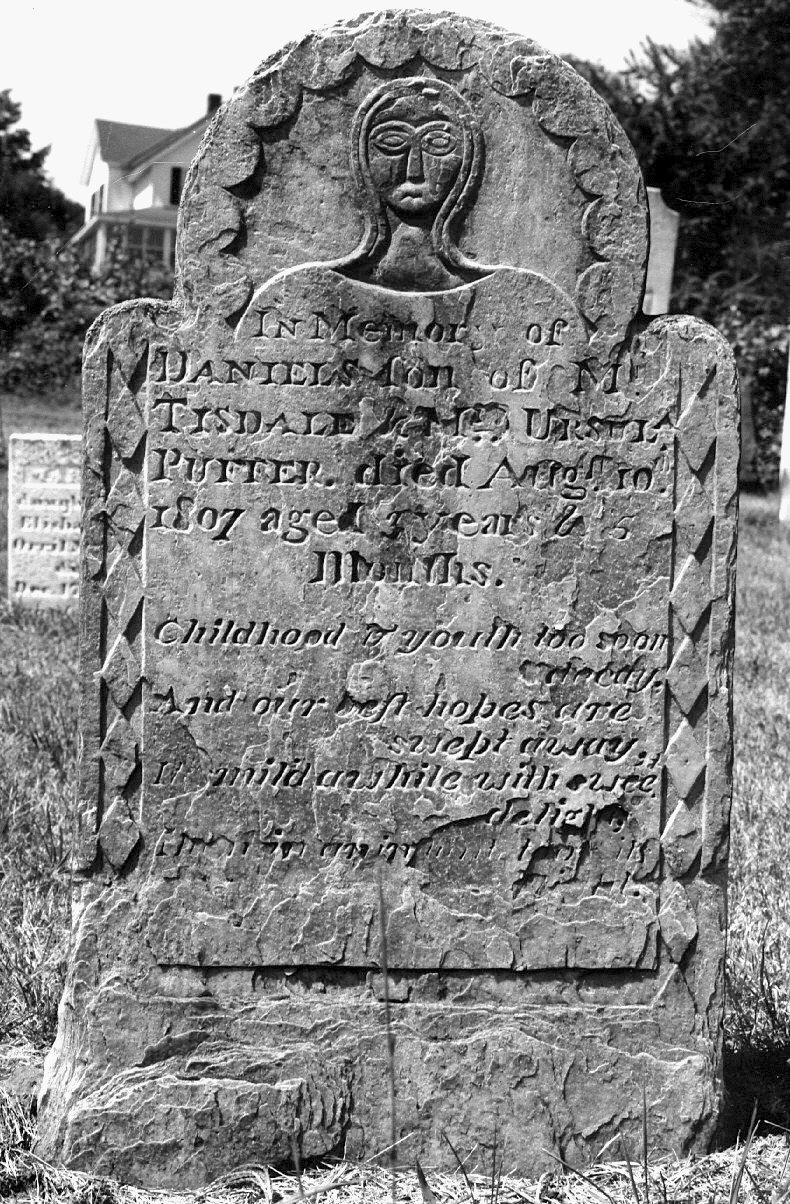 In Memory of
DANIELS son of Mr.
TISDALE & Mrs. URSULA
PUFFER. died Augst. 10th.
1807 aged 7 years & 5
Months.
Childhood & youth too soon
decay,
And our best hopes are
swept away,
mild awhile with swee
delight
in an